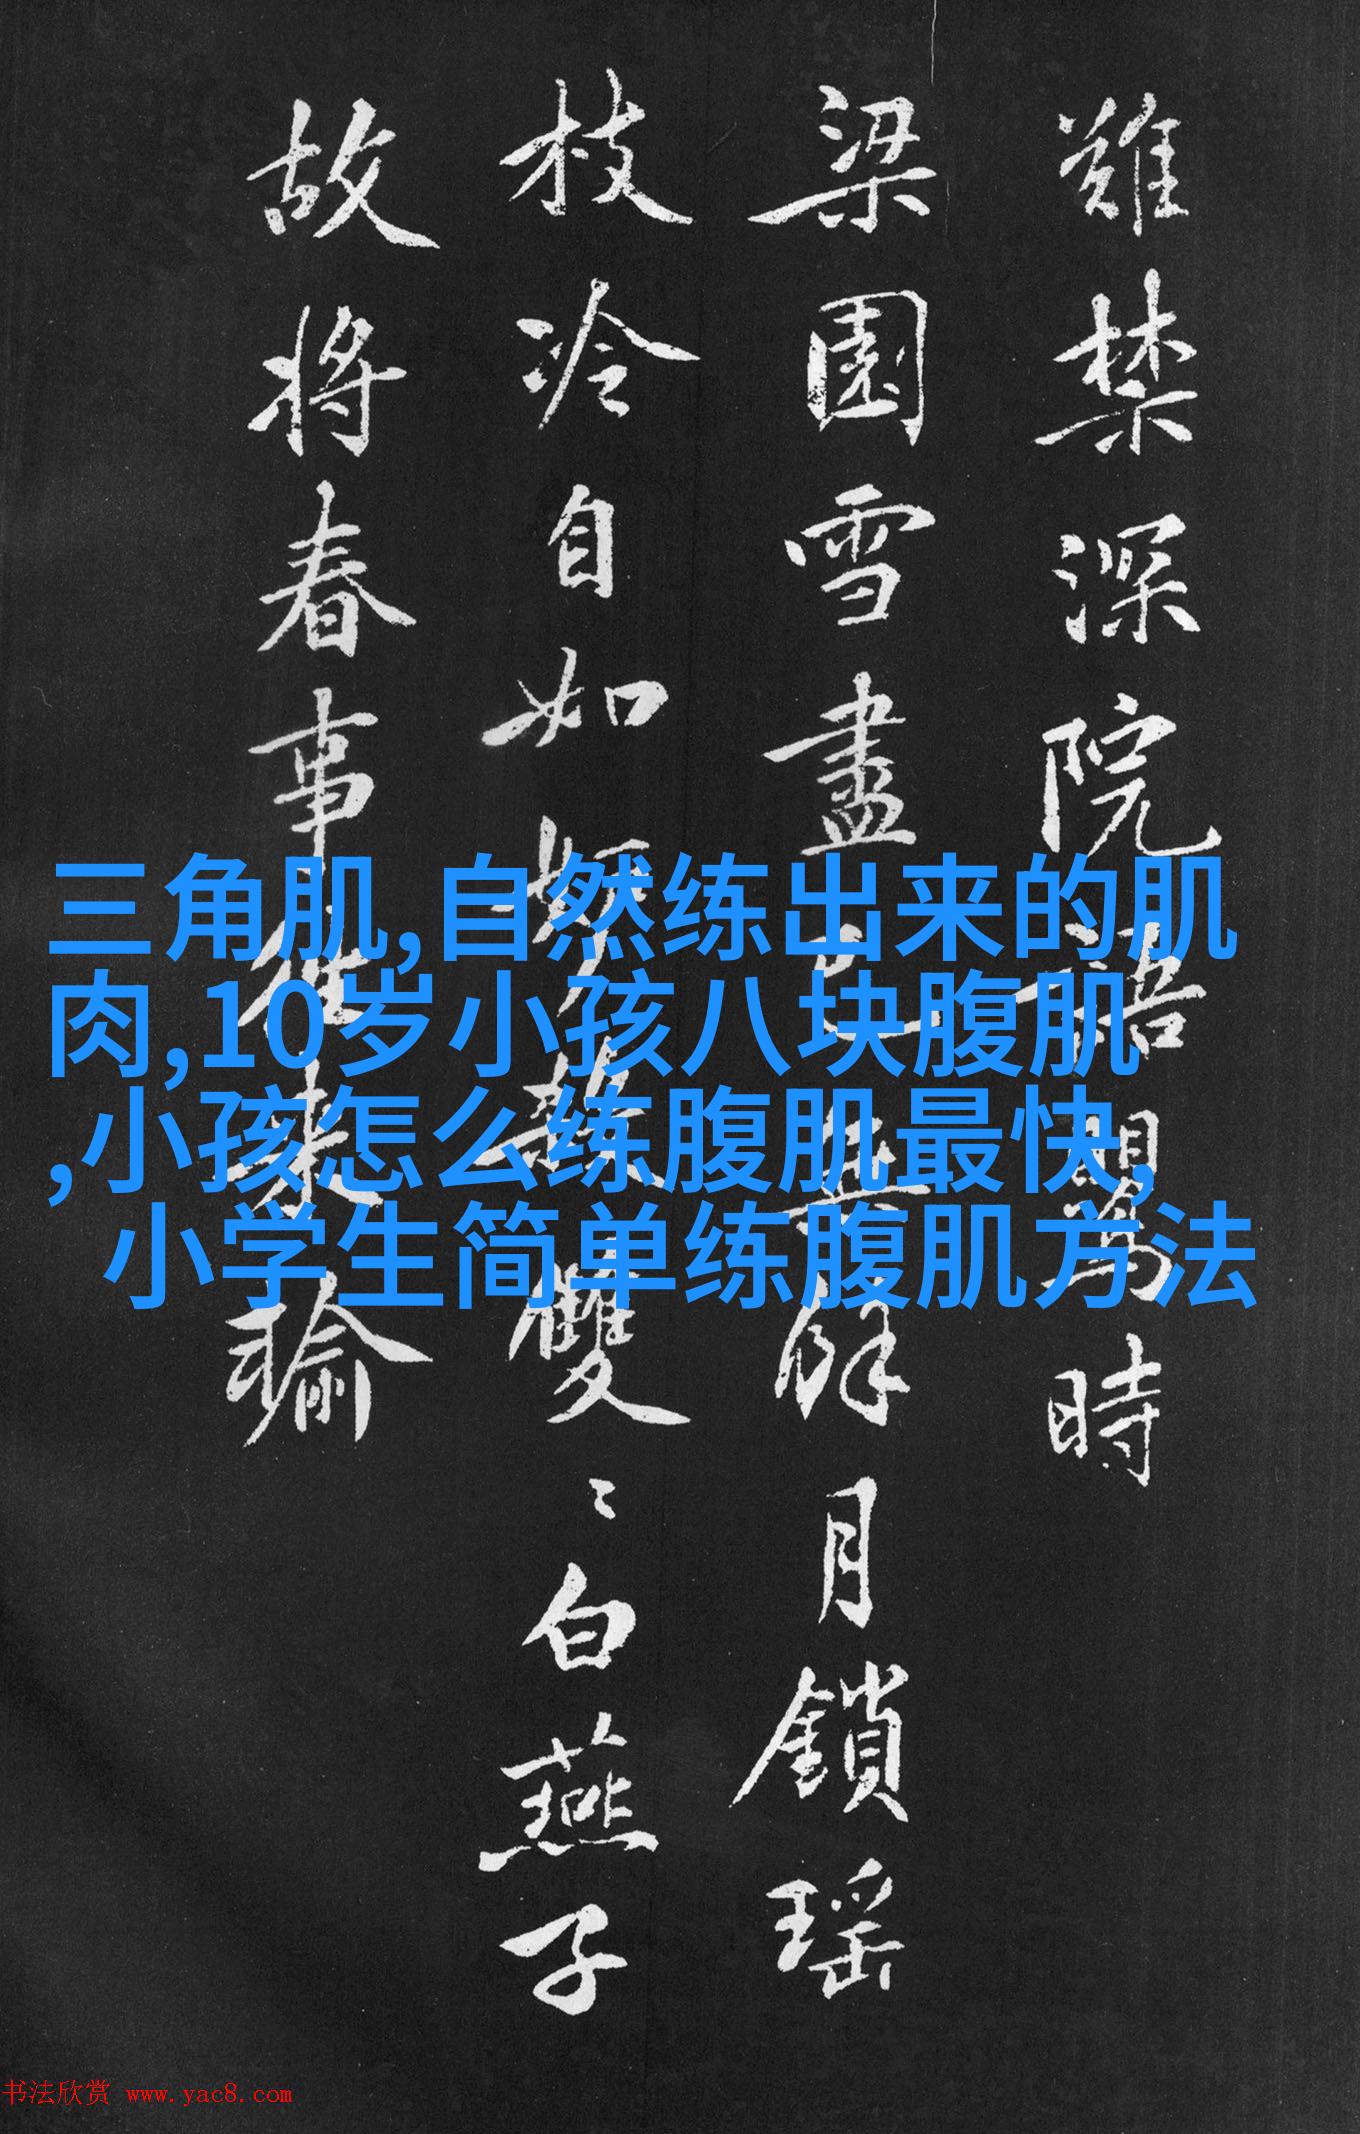 難禁深院語鶯時
梁園雪盡已無餘月鎖瑶
枝冷自如
雙〻白燕子
故將春事
來瑜
三角肌,自然练出来的肌
肉,10岁小孩八块腹肌
,小孩怎么练腹肌最快,
小学生简单练腹肌方法
书法欣赏 www.yac8.com